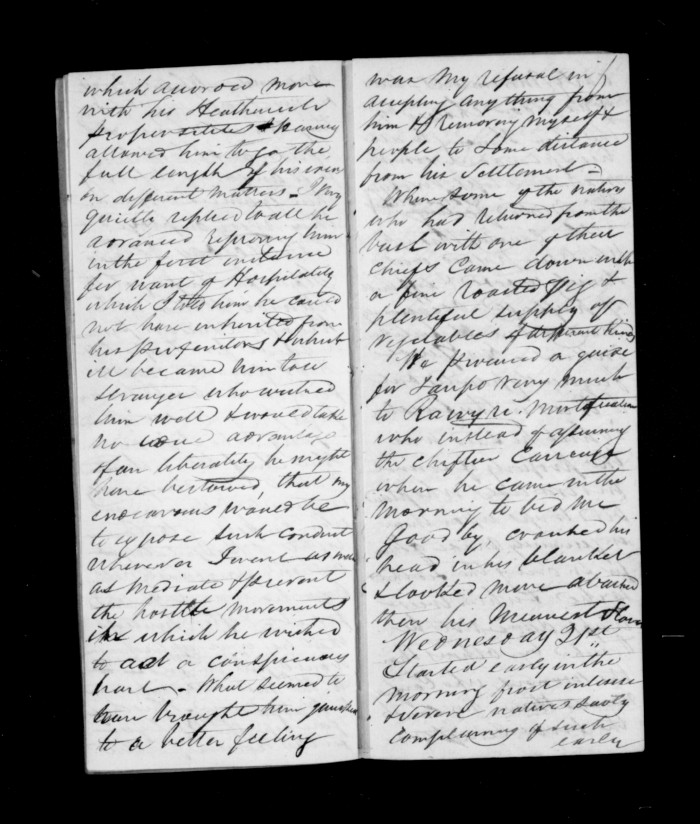 which accorded more
with his Heathenish
propensities & having
allowed him to go the
full length of his
on different matters - I very
replied to all he
advanced reproving him
in the first instance
for want of Hospitality
which I told him he could
not have inherited from
his progenitors & which
ill became him to a
stranger who wished
him well & would take
no advantage
of any liberality he might
have bestowed, that my
endeavours would be
to expose such conduct
wherever I went as well
as mediate & prevent
the hostile movements
in which he wished
to act a conspicuous
part - What seemed to
have brought him
to a better feeling
was my refusal in
accepting anything from
him & removing myself &
people to some distance
from his settlement -
Where some of the natives
who had returned from the
with one of their
chiefs came down with
a fine roasted pig &
plentiful supply of
vegetables of different kinds
We procured a guide
for Taupo very much
to mortification
who instead of assuming
the chiefs
when he came in the
morning to bid me
Good by, crouched his
head in his blanket
& looked more abashed
then his meanest slave
Wednesday 21st
Started early in the
morning frost intense
& severe natives sadly
complaining of such
early